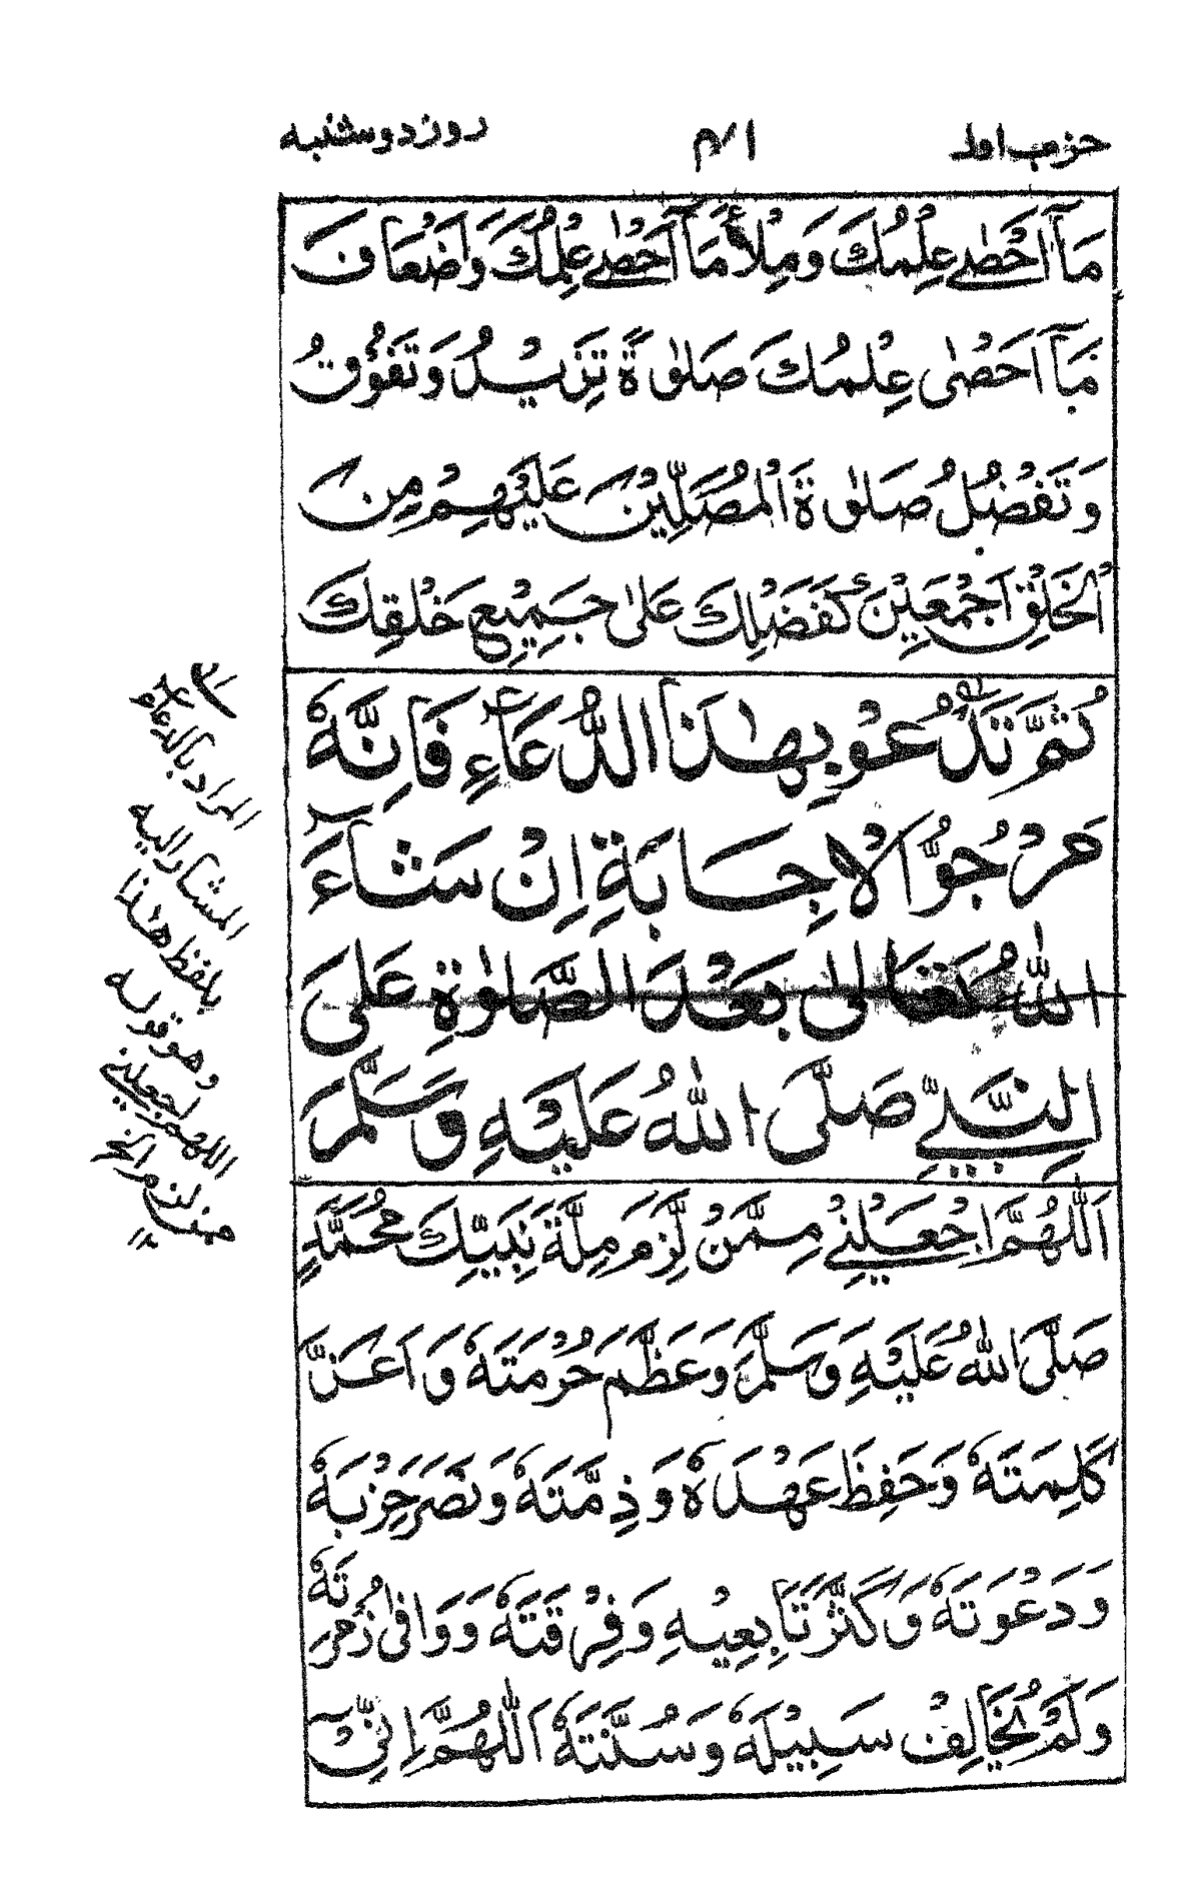 حزب اول ١٤١ روز دوشنبه
مَآ اَحْصٰى عِلْمُكَ وَمِلْأَ مَآ اَحْصٰى عِلْمُكَ وَاَضْعَافَ
مَآ اَحْصٰى عِلْمُكَ صَلٰوةً تَزِيْدُ وَتَفُوْقُ
وَتَفْضُلُ صَلٰوةَ الْمُصَلِّيْنَ عَلَيْهِمْ مِنَ
الْخَلْقِ اَجْمَعِيْنَ كَفَضْلِكَ عَلٰى جَمِيْعِ خَلْقِكَ
ثُمَّ تَدْعُوْ بِهٰذَا الدُّعَآءِ فَاِنَّهٗ
مَرْجُوُّ الْاِجَابَةِ اِنْ شَآءَ
اللّٰهُ تَعَالٰى بَعْدَ الصَّلٰوةِ عَلَى
النَّبِيِّ صَلَّى اللّٰهُ عَلَيْهِ وَسَلَّمَ
اَللّٰهُمَّ اجْعَلْنِيْ مِمَّنْ لَّزِمَ مِلَّةَ نَبِيِّكَ مُحَمَّدٍ
صَلَّى اللّٰهُ عَلَيْهِ وَسَلَّمَ وَعَظَّمَ حُرْمَتَهٗ وَاَعَزَّ
كَلِمَتَهٗ وَحَفِظَ عَهْدَهٗ وَذِمَّتَهٗ وَنَصَرَ حِزْبَهٗ
وَدَعْوَتَهٗ وَكَثَّرَ تَابِعِيْهِ وَفِرْقَتَهٗ وَوَافٰى زُمْرَتَهٗ
وَلَمْ يُخَالِفْ سَبِيْلَهٗ وَسُنَّتَهٗ اَللّٰهُمَّ اِنِّيْٓ
المراد بالدعاء
المشار اليه
بلفظ هذا
وهو قوله
اللهم اجعلني
ممن لزم الخ
١٢